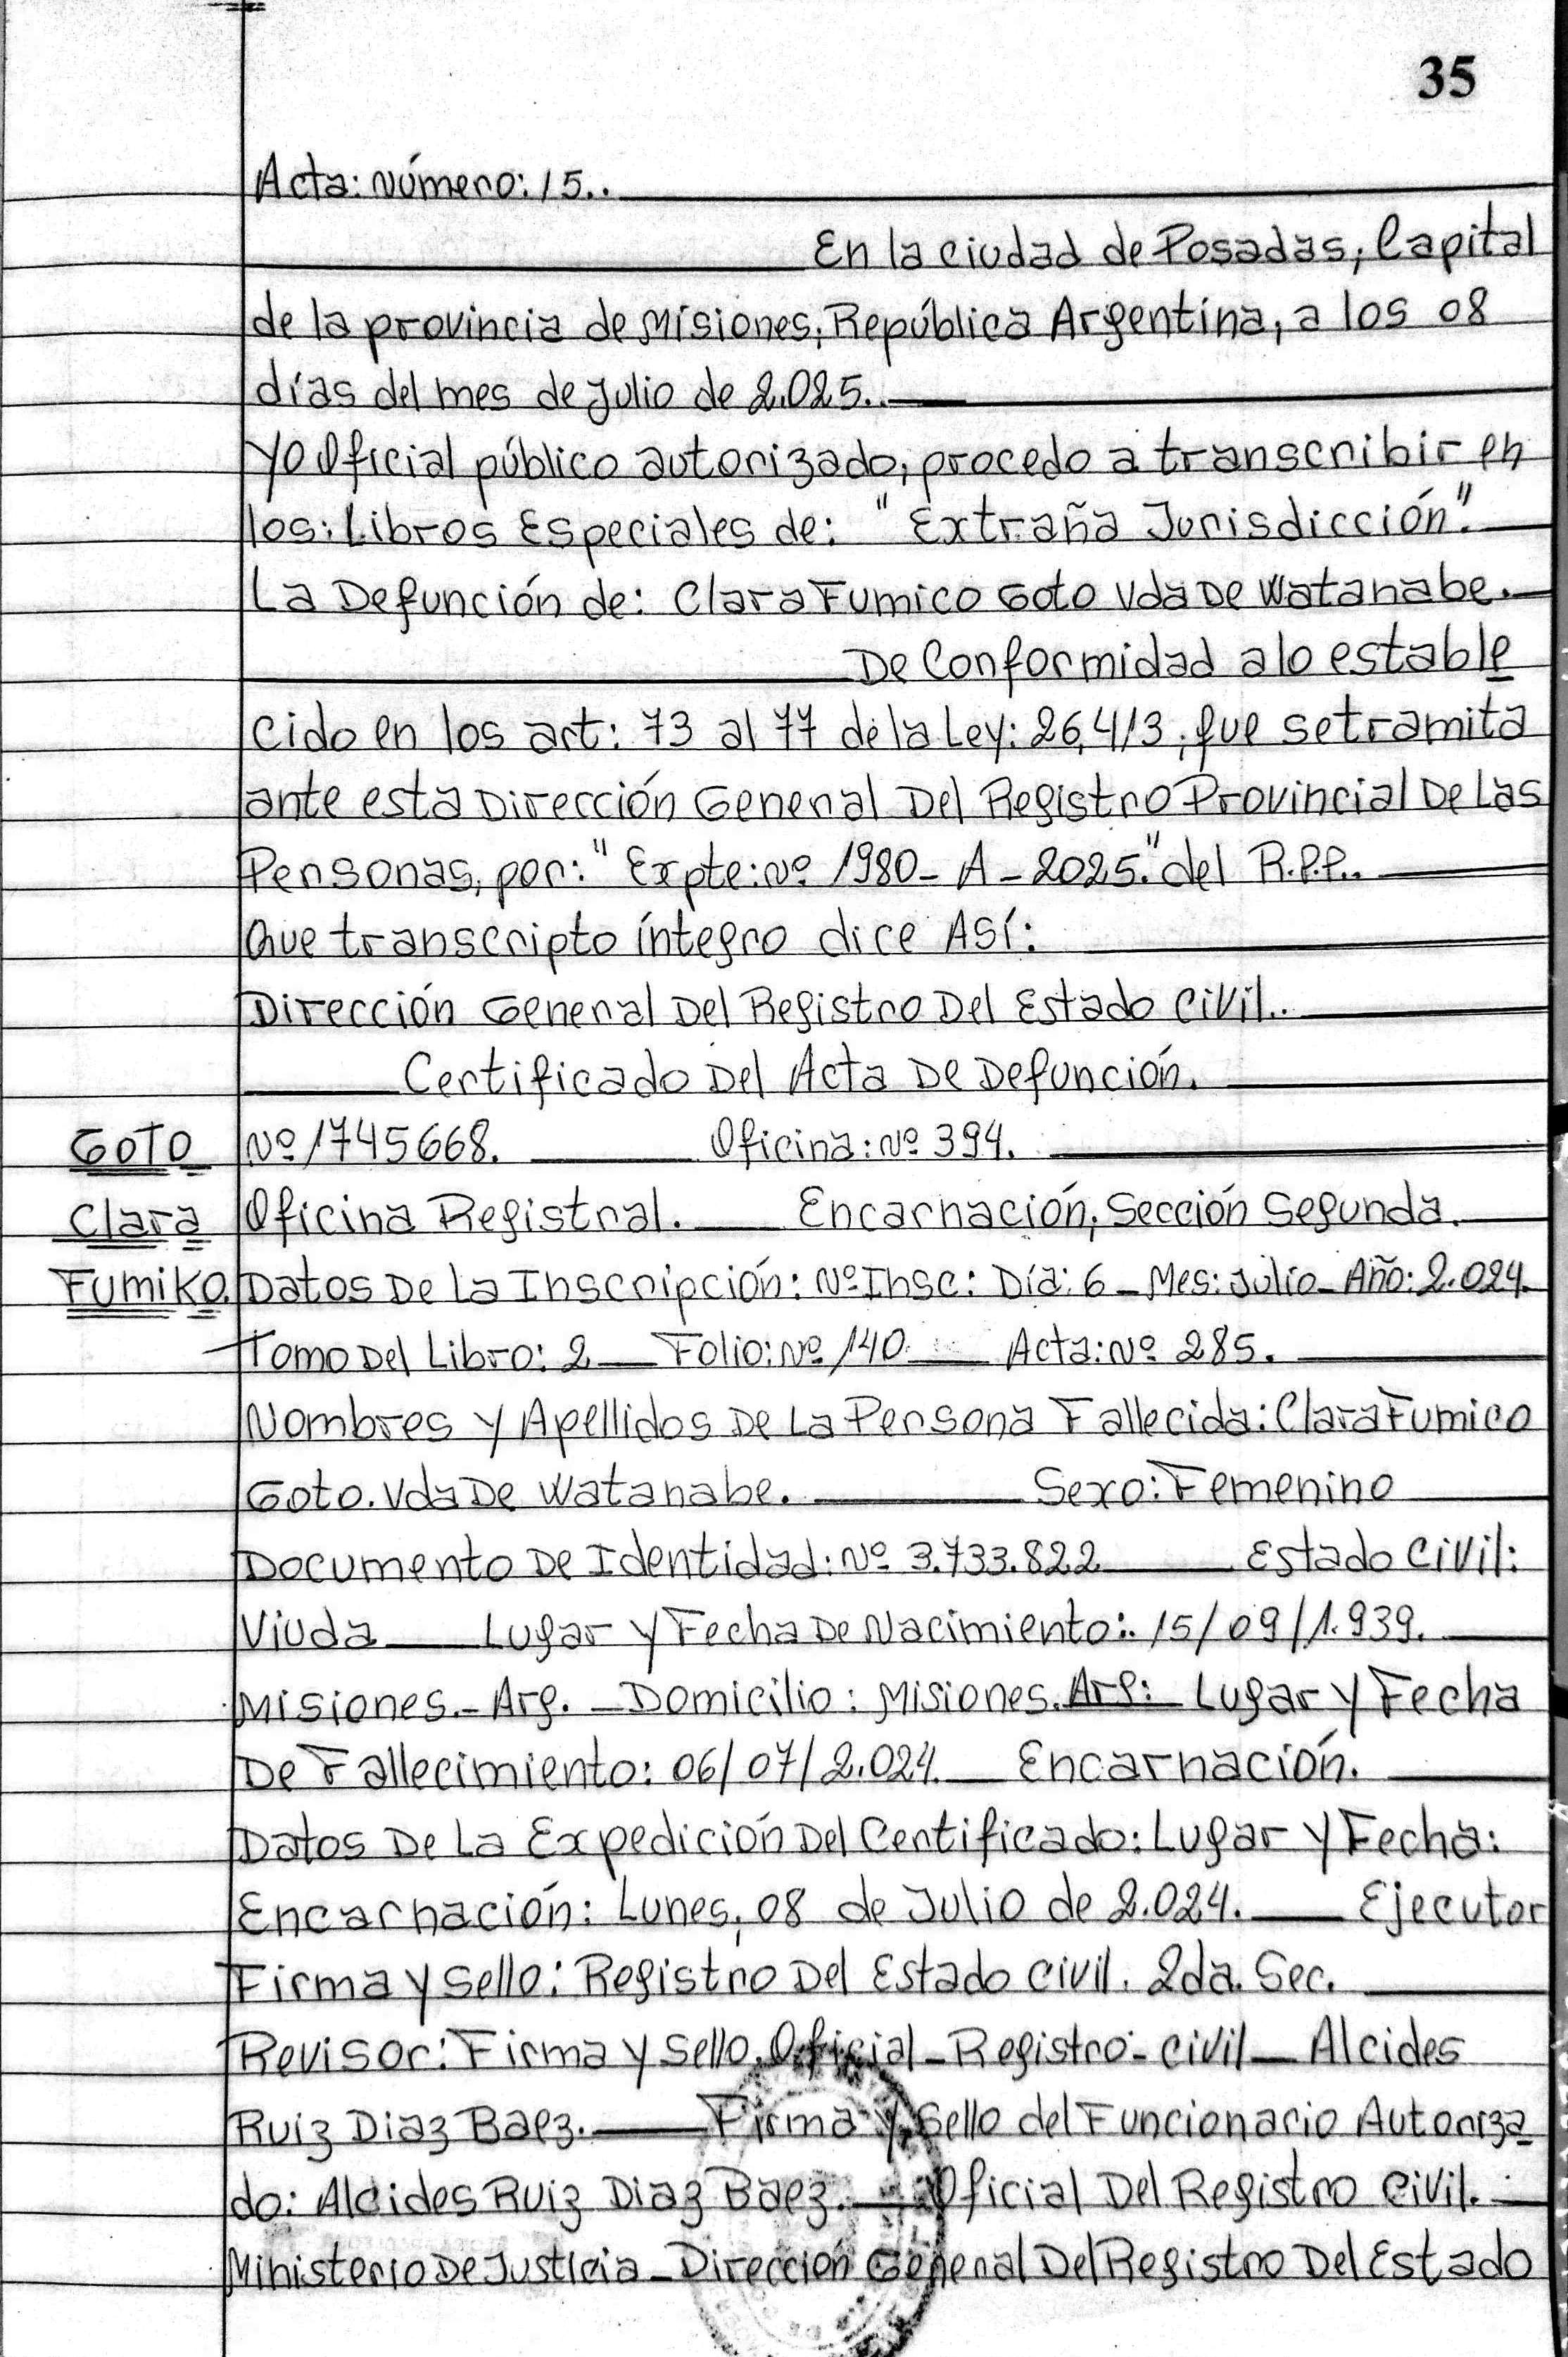 35
Acta: Número: 15..
En la ciudad de Posadas, Capital
de la provincia de Misiones, República Argentina, a los 08
días del mes de Julio de 2.025..
Yo Oficial público autorizado, procedo a transcribir en
los: Libros Especiales de: "Extraña Jurisdicción".
La Defunción de: Clara Fumico Goto Vda De Watanabe.
De Conformidad a lo estable
cido en los art: 73 al 77 de la Ley: 26,413, que se tramita
ante esta Dirección General Del Registro Provincial De Las
Personas, por: "Expte: Nº 1980- A - 2025." del R.P.P..
Que transcripto íntegro dice Así:
Dirección General Del Registro Del Estado Civil..
Certificado Del Acta De Defunción.
Nº 1745668. Oficina: Nº 394.
Oficina Registral. Encarnación, Sección Segunda.
Datos De La Inscripción: Nº Insc: Día: 6 - Mes: Julio - Año: 2.024.
Tomo Del Libro: 2 Folio: Nº 140 Acta: Nº 285.
Nombres y Apellidos De La Persona Fallecida: Clara Fumico
Goto. Vda De Watanabe. Sexo: Femenino
Documento De Identidad: Nº 3.733.822 Estado Civil:
Viuda Lugar y Fecha De Nacimiento:. 15/09/1.939.
Misiones.- Arg. - Domicilio: Misiones. Arg: Lugar y Fecha
De Fallecimiento: 06/07/2.024. Encarnación.
Datos De La Expedición Del Certificado: Lugar y Fecha:
Encarnación: Lunes, 08 de Julio de 2.024. Ejecutor
Firma y Sello: Registro Del Estado Civil. 2da. Sec.
Revisor: Firma y Sello. Oficial - Registro - Civil - Alcides
Ruiz Diaz Baez. Firma y Sello del Funcionario Autoriza
do: Alcides Ruiz Diaz Baez. Oficial Del Registro Civil.
Ministerio De Justicia - Dirección General Del Registro Del Estado
GOTO
Clara
Fumiko.